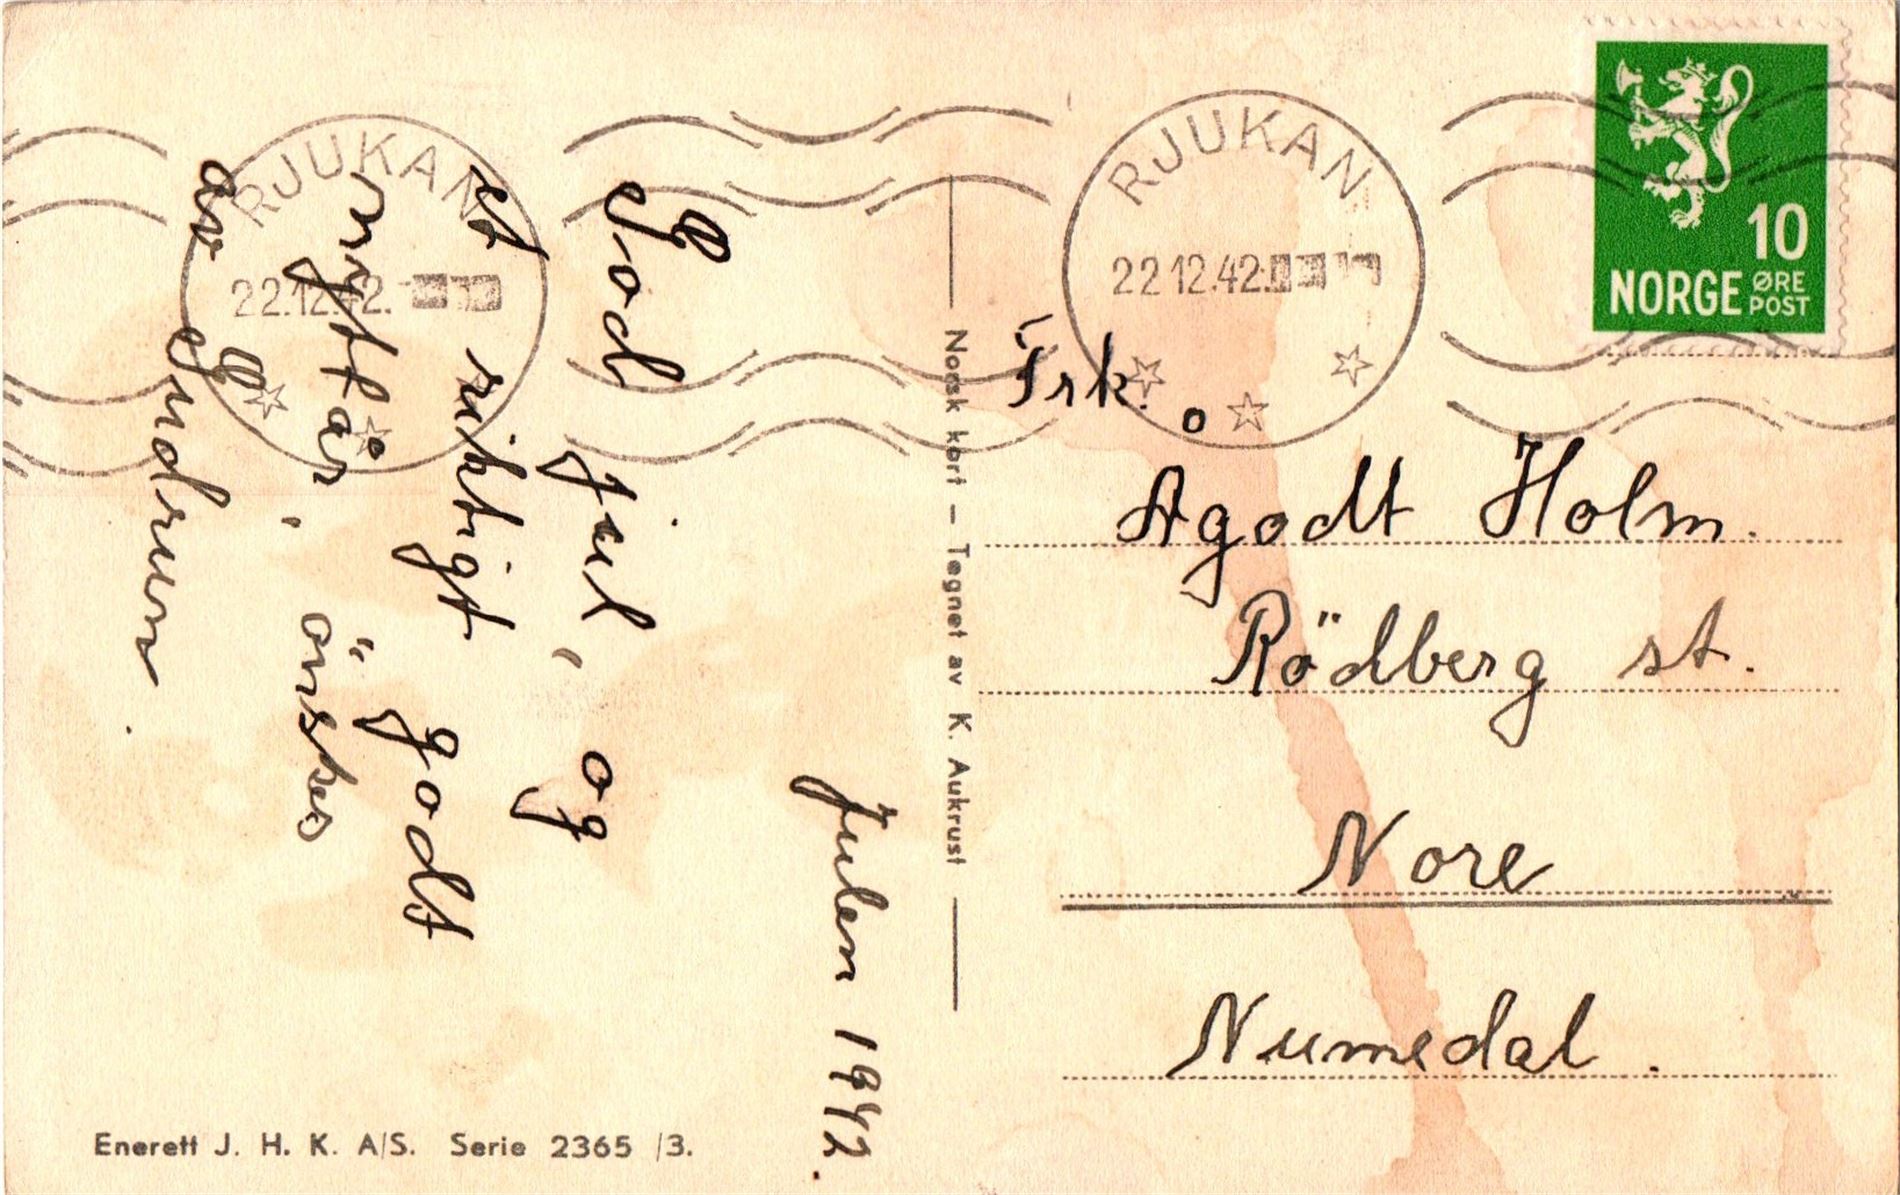 Julen 1942.
God jul, og
et riktigt godt
nyttår, önskes
av Gudrun.
Norsk kort – Tegnet av K. Aukrust
Enerett J. H. K. A/S. Serie 2365 /3.
RJUKAN
22.12.42.
RJUKAN
22 12.42.
10
NORGE ØRE
POST
Frk.
Ågodt Holm.
Rödberg st.
Nore
Numedal.